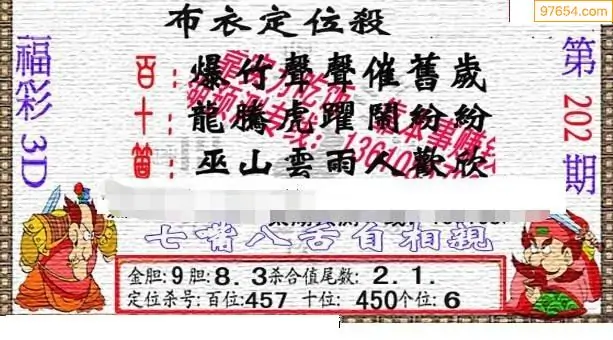 97654.com
布衣定位殺
福彩3D
第202期
百:爆竹聲聲催舊歲
十:龍騰虎躍鬧紛紛
個:巫山雲雨人歡欣
七嘴八舌自相親
金胆:9胆:8.3杀合值尾数:2.1.
定位杀号:百位:457 十位:450个位:6